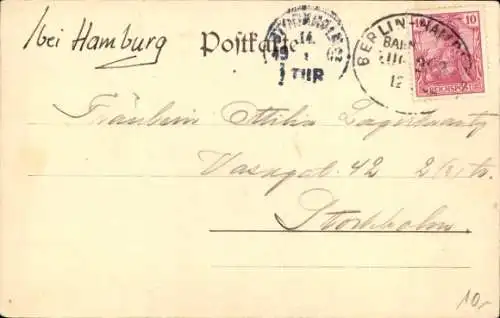 (bei Hamburg
Postkarte
14.
1 TUR
BERLIN-HAMB
BAHN
10
REICHSPOST
Fräulein Ottilia Lagercrantz
Vasagat. 42 2
Stockholm.
10,-